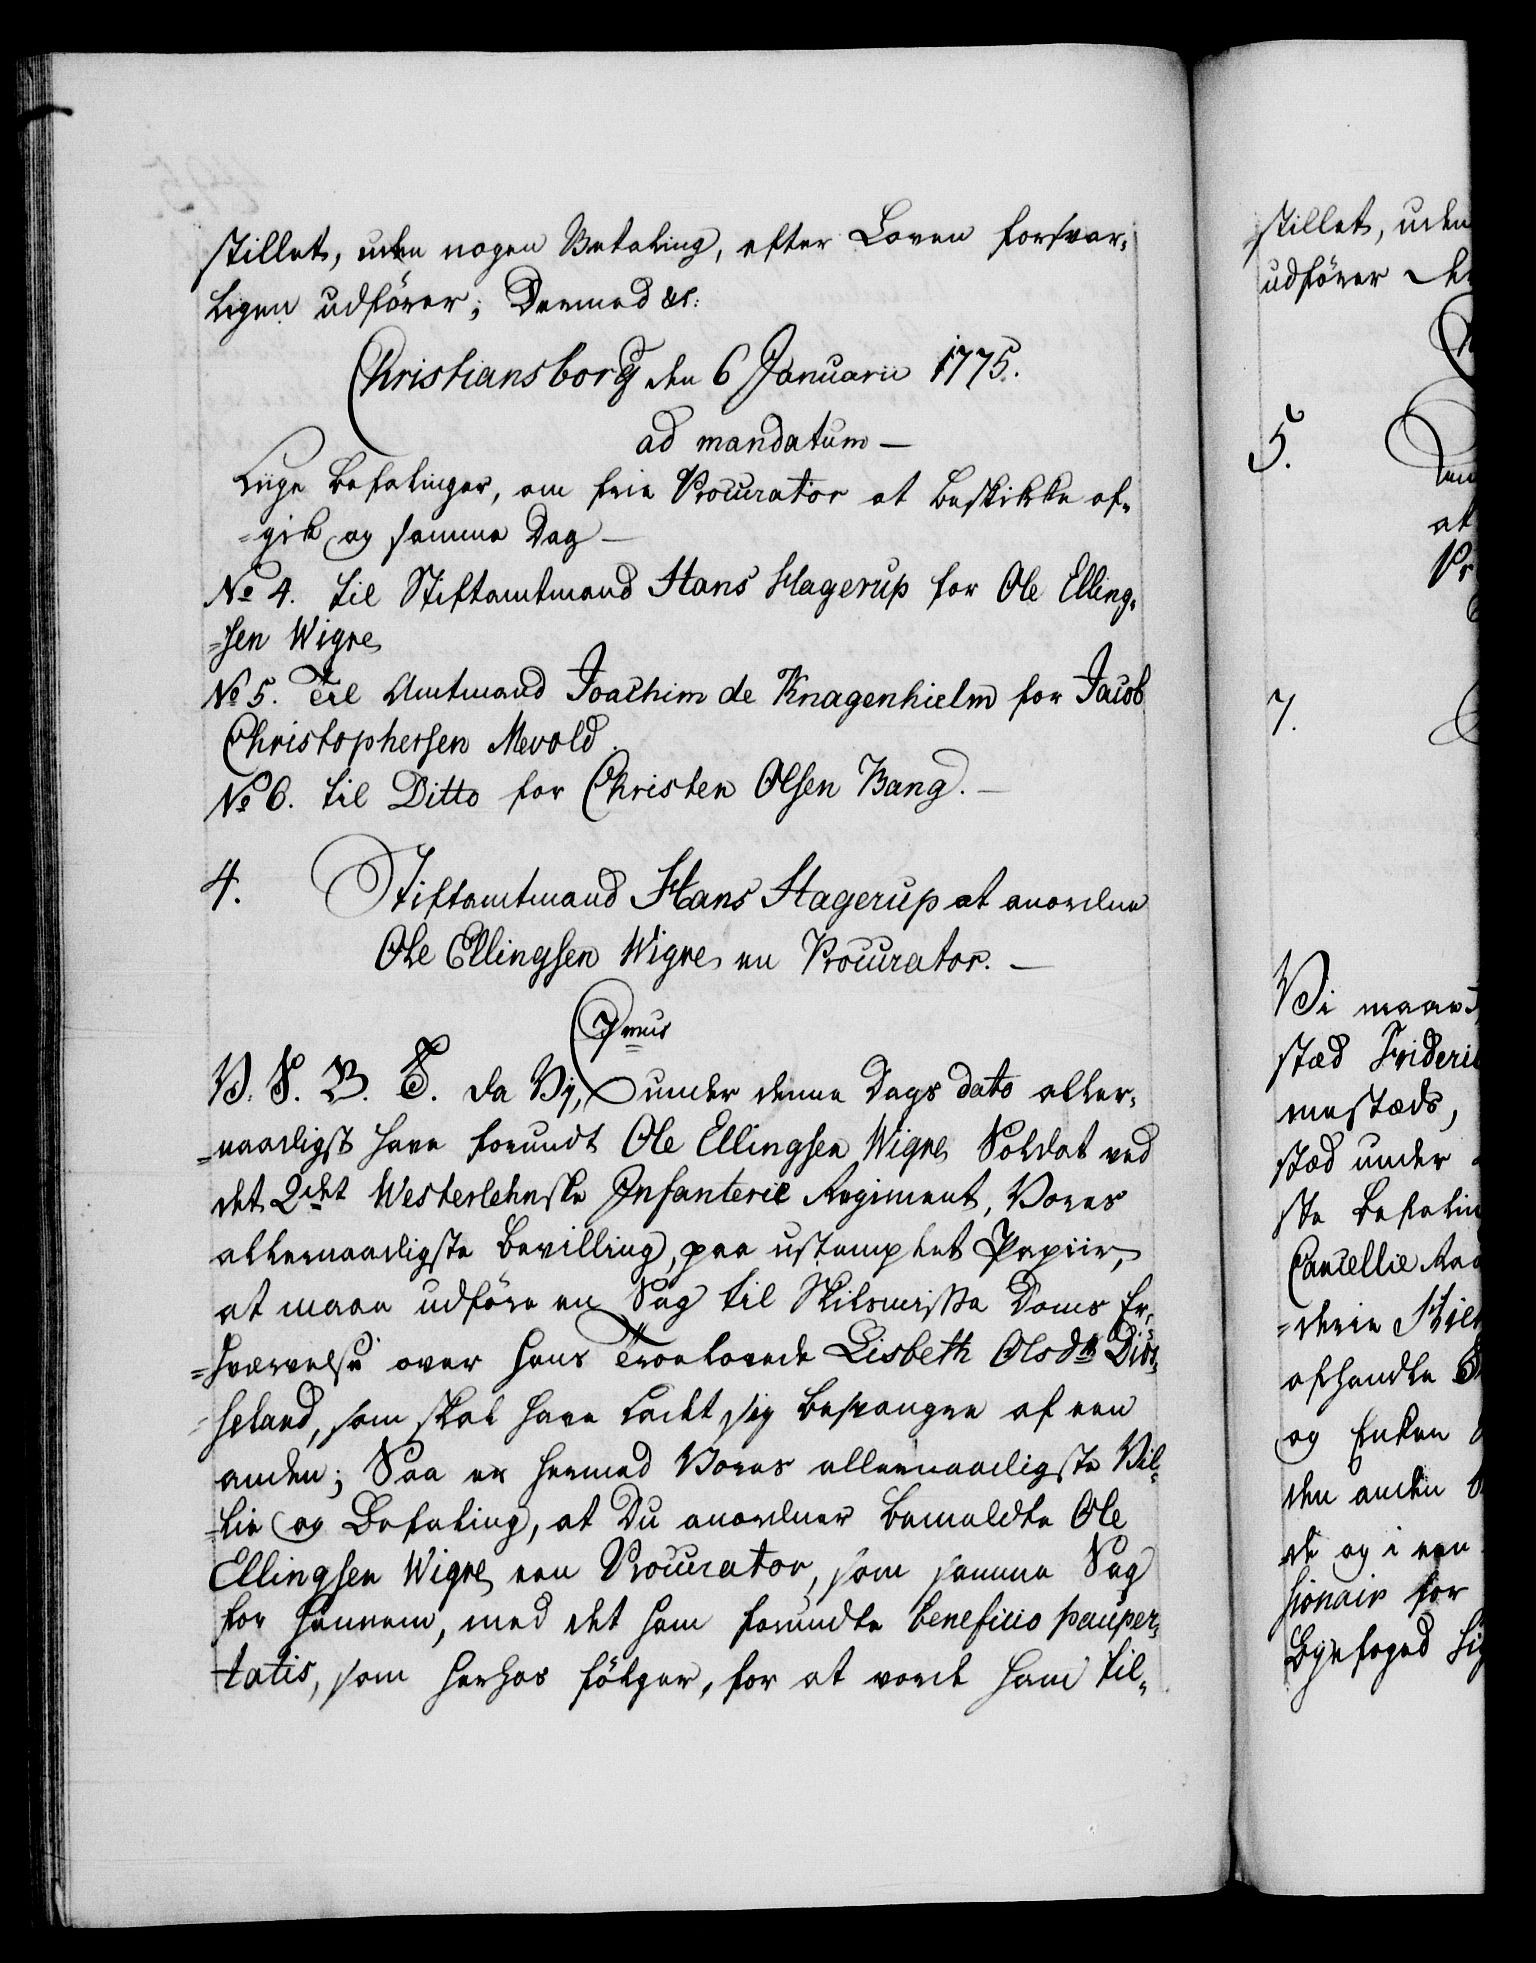 stillet, uden nogen Betaling, efter Loven forsvar-
ligen udförer; Dermed &c:
Christiansborg den 6 Januarii 1775.
ad mandatum —
Liige Befalinger, om frie Procurator at beskikke af-
=gik og samme Dag —
No 4. til Stiftamtmand Hans Hagerup for Ole Elling-
=sen Wigre
No 5. Til Amtmand Joachim de Knagenhielm for Jacob
Christophersen Mevold.
No 6. til Ditto for Christen Olsen Bang. —
4. Stiftamtmand Hans Hagerup at anordne
Ole Ellingsen Wigre en Procurator. —
C 7mus
V. S. B. T. da Vj, under denne Dags dato aller-
=naadigst have forundt Ole Ellingsen Wigre Soldat ved
det 2det Westerlehnske Infanterie Regiment, Vores
allernaadigste Bevilling, paa ustemplet Papiir,
at maae udföre en Sag til Skilsmisse Doms Er-
=hværvelse over hans Troelovede Lisbeth Olsdr Dids-
heland, som skal have ladt sig besvangre af een
anden; Saa er hermed Vores allernaadigste Vil-
=lie og Befaling, at Du anordner bemeldte Ole
Ellingsen Wigre een Procurator, som samme Sag
for hannem, med det ham forundte beneficio pauper-
tatis, som herhos fölger, for at vorde ham til-
stillet, uden
udförer de
5.
at
Pr
7.
Vi maae
stæd Frideri
mestæds,
stæd under
ste Befalin
Cancellie Raa
=derie
afhandle
og Enken
den anden
de og i een
sionair for
Byefoged